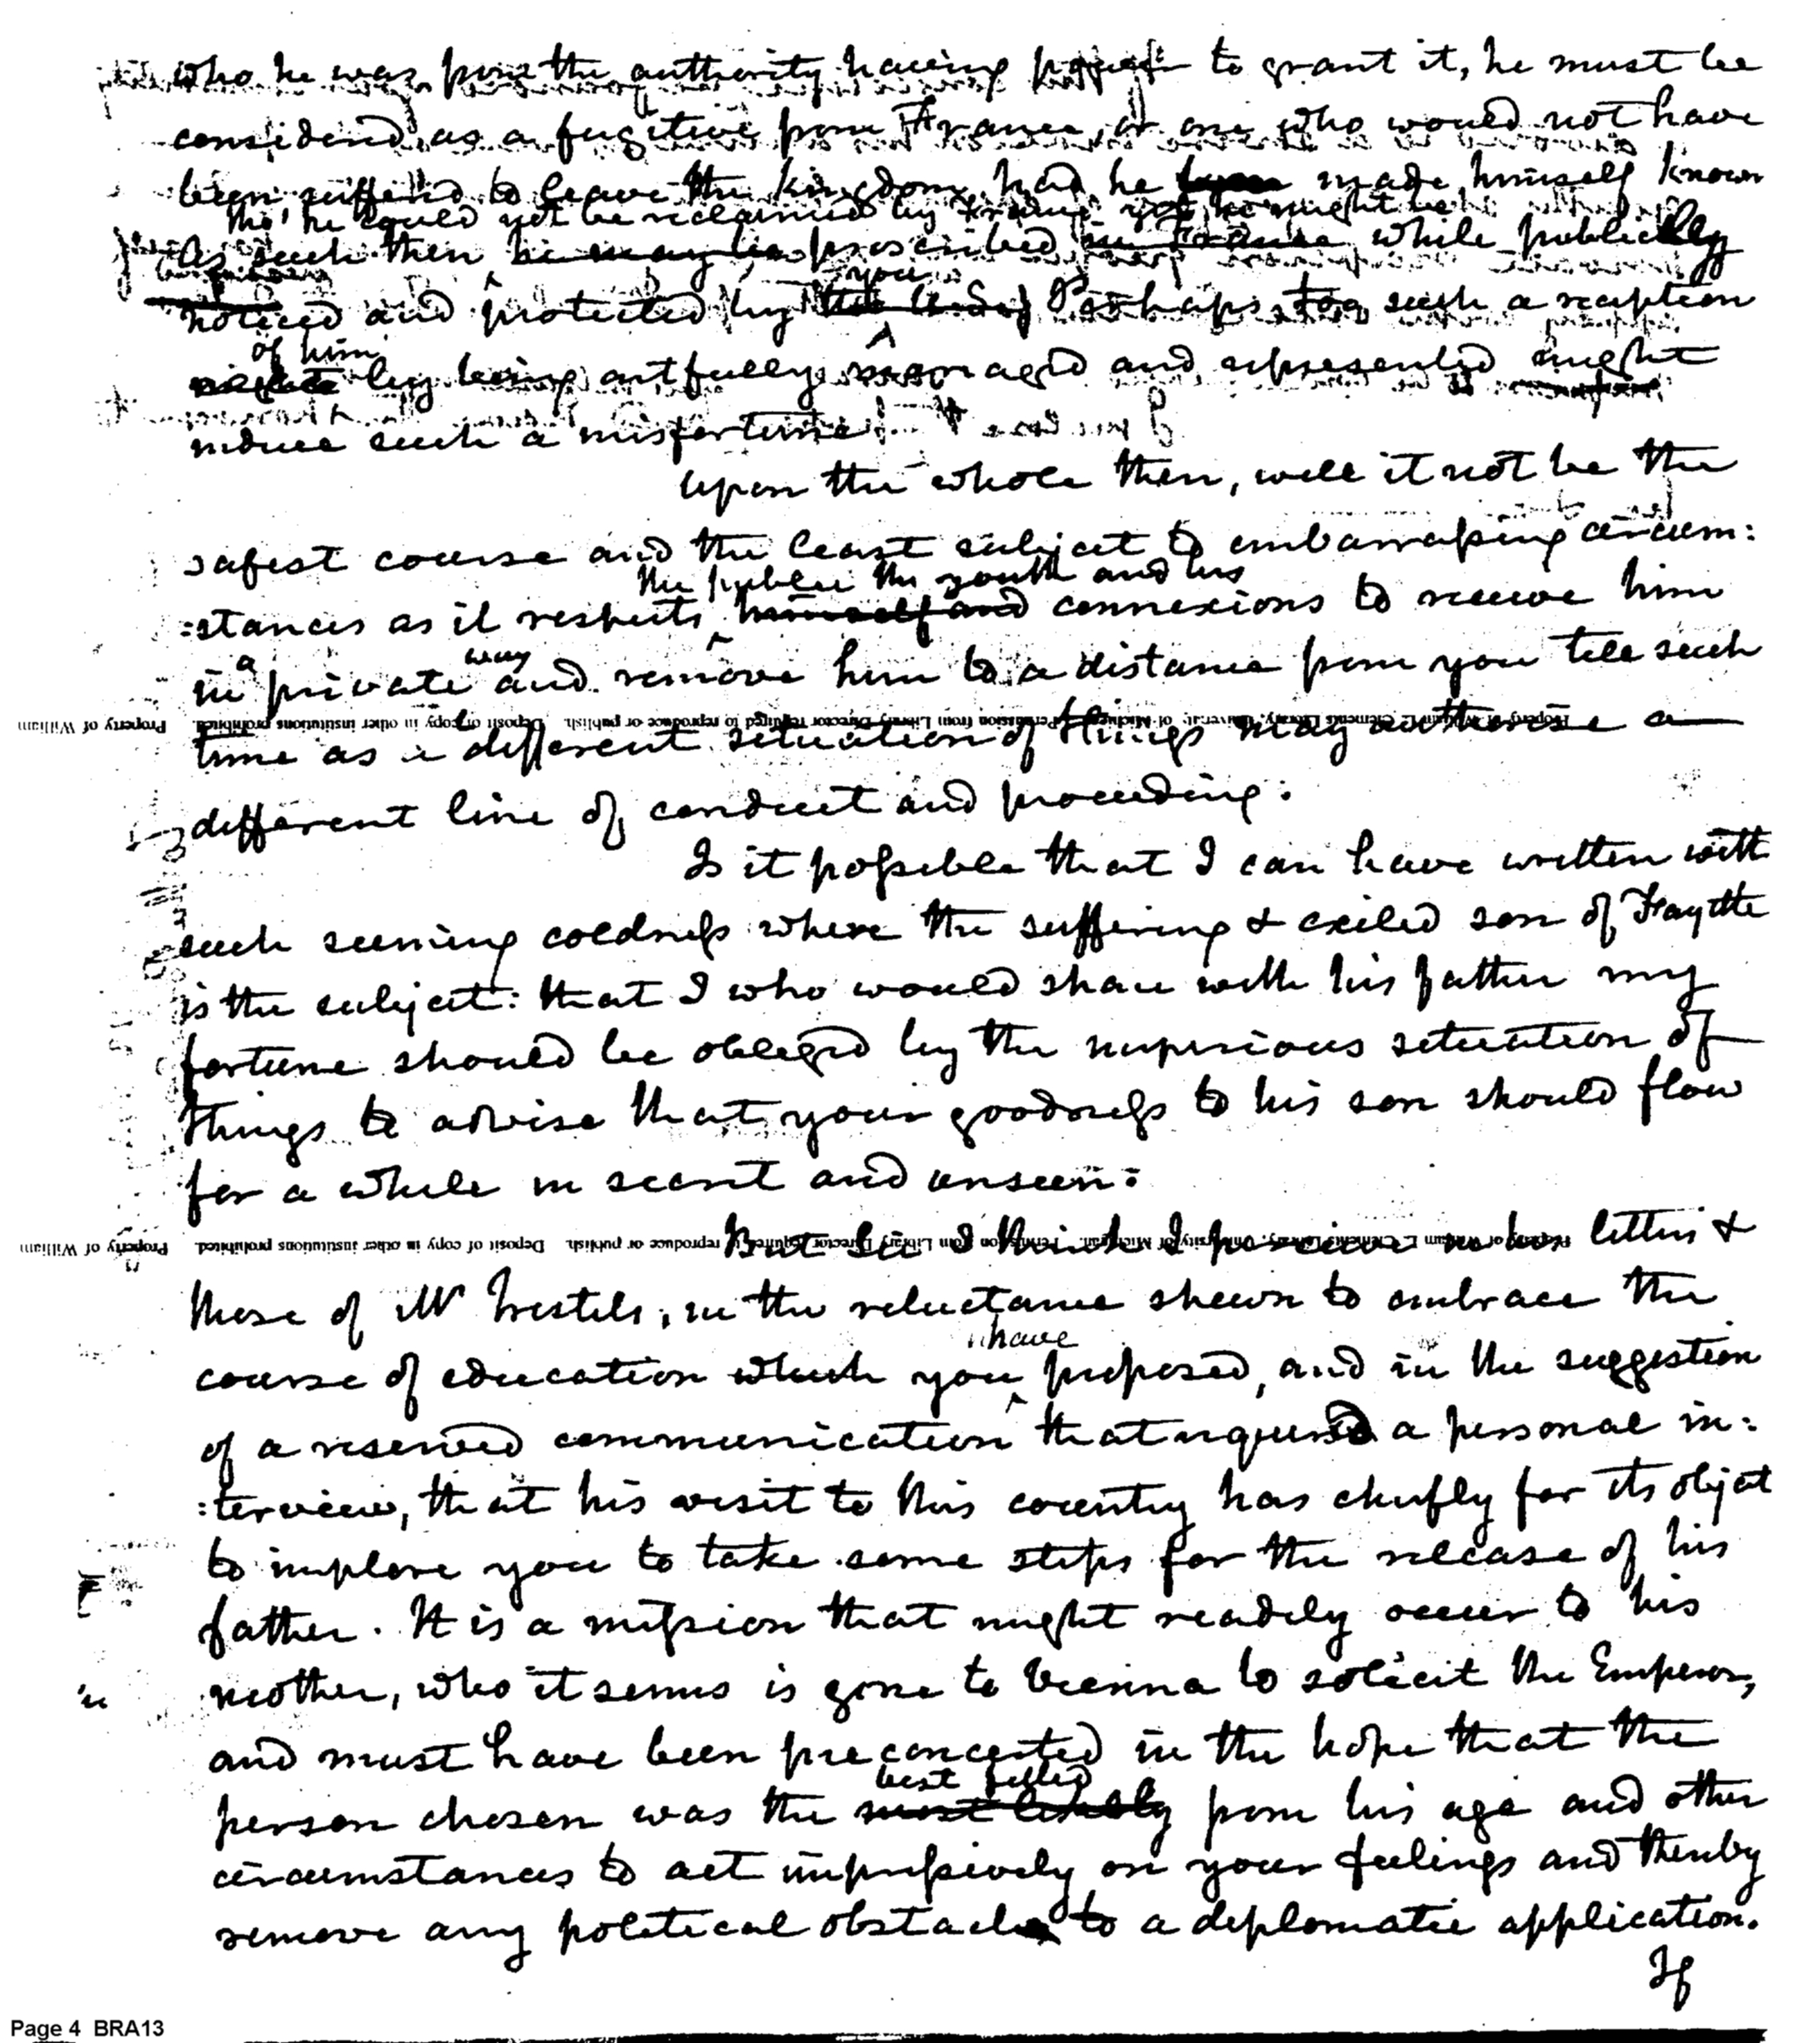 who he was from the authority having power to grant it, he must be
considered as a fugitive from France, or one who would not have
been suffered to leave the Kingdom, had he made himself known
tho' he could not be reclaimed by France yet he might be
As such then he may be proscribed in France while publickly
you
noticed and protected by Perhaps too such a reception
of him
by being artfully managed and represented might
induce such a misfortune.
Upon the whole then, will it not be the
safest course and the least subject to embarrassing circum:
the public the youth and his
:stances as it respects himself and connexions to receive him
a way
in private and remove him to a distance from you till such
Property of William L. Clements Library, University of Michigan. Permission from Library Director required to reproduce or publish. Deposit of copy in other institutions prohibited. Property of William
time as a different situation of things may authorise a
different line of conduct and proceeding:
Is it possible that I can have written with
such seeming coldness where the suffering & exiled son of Fayette
is the subject: that I who would share with his father my
fortune should be obliged by the imperious situation of
things to advise that your goodness to his son should flow
for a while in secret and unseen:
Property of William L. Clements Library, University of Michigan. Permission from Library Director required to reproduce or publish. Deposit of copy in other institutions prohibited. Property of William
But Sir I think I perceive in his letters &
those of Mr Frestels, in the reluctance shewn to embrace the
have
course of education which you proposed, and in the suggestion
of a reserved communication that required a personal in:
:terview, that his visit to this country has chiefly for its object
to implore you to take some steps for the release of his
father. It is a mission that might readily occur to his
mother, who it seems is gone to Vienna to solicit the Emperor,
and must have been preconcerted in the hope that the
best fitted
person chosen was the most likely from his age and other
circumstances to act impressively on your feelings and thereby
remove any political obstacle to a diplomatic application.
If
Page 4 BRA13